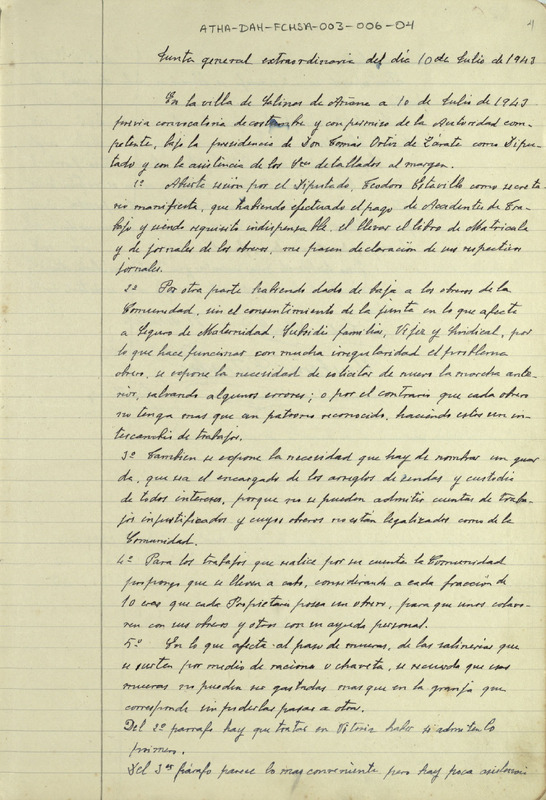 ATHA-DAH-FCHSA-003-006-04
4
Junta general extraordinaria del día 10 de Julio de 1943
En la villa de Salinas de Añana a 10 de Julio de 1943
previa convocatoria de costumbre y con permiso de la Autoridad com-
petente, bajo la presidencia de Don Tomás Ortiz de Zárate como Dipu-
tado y con la asistencia de los Sres detallados al margen.
1º Abierta sesión por el Diputado, Teodoro Estavillo como secreta-
rio manifiesta, que habiendo efectuado el pago de Accidentes de Tra-
bajo y siendo requisito indispensable, el llevar el libro de Matricula
y de jornales de los obreros, me pasen declaración de sus respectivos
jornales.
2º Por otra parte habiendo dado de baja a los obreros de la
Comunidad, sin el consentimiento de la junta en lo que afecta
a Seguro de Maternidad, Subsidio familiar, Vejez y Sindical, por
lo que hace funcionar con mucha irregularidad el problema
obrero, se expone la necesidad de solicitar de nuevo la marcha ante-
rior, salvando algunos errores; o por el contrario que cada obrero
no tenga mas que un patrono reconocido, haciendo estos un in-
tercambio de trabajos.
3º Tambien se expone la necesidad que hay de nombrar un guar
da, que sea el encargado de los arreglos de sendas y custodia
de todos intereses, porque no se pueden admitir cuentas de traba-
jos injustificados y cuyos obreros no están legalizados como de la
Comunidad.
4º Para los trabajos que realice por su cuenta la Comunidad
propongo que se lleven a cabo, considerando a cada fracción de
10 eras que cada Propietario posea un obrero, para que unos colabo-
ren con sus obreros y otros con su ayuda personal.
5º En lo que afecta al paso de mueras, de las salineras que
se surten por medio de raciona o chaveta, se recuerda que esas
mueras no pueden ser gastadas mas que en la granja que
corresponde sin poderlas pasar a otra.
Del 2º parrafo hay que tratar en Vitoria haber si admiten lo
primero.
Del 3er párafo parece lo mas conveniente pero hay poca asistencia